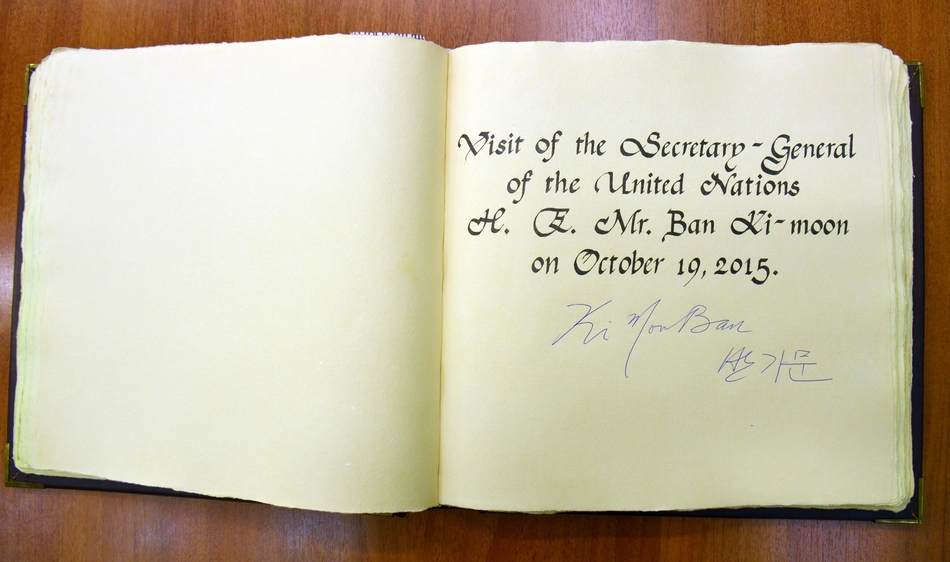 Visit of the Secretary-General
of the United Nations
H. E. Mr. Ban Ki-moon
on October 19, 2015.
Ki Moon Ban
반기문